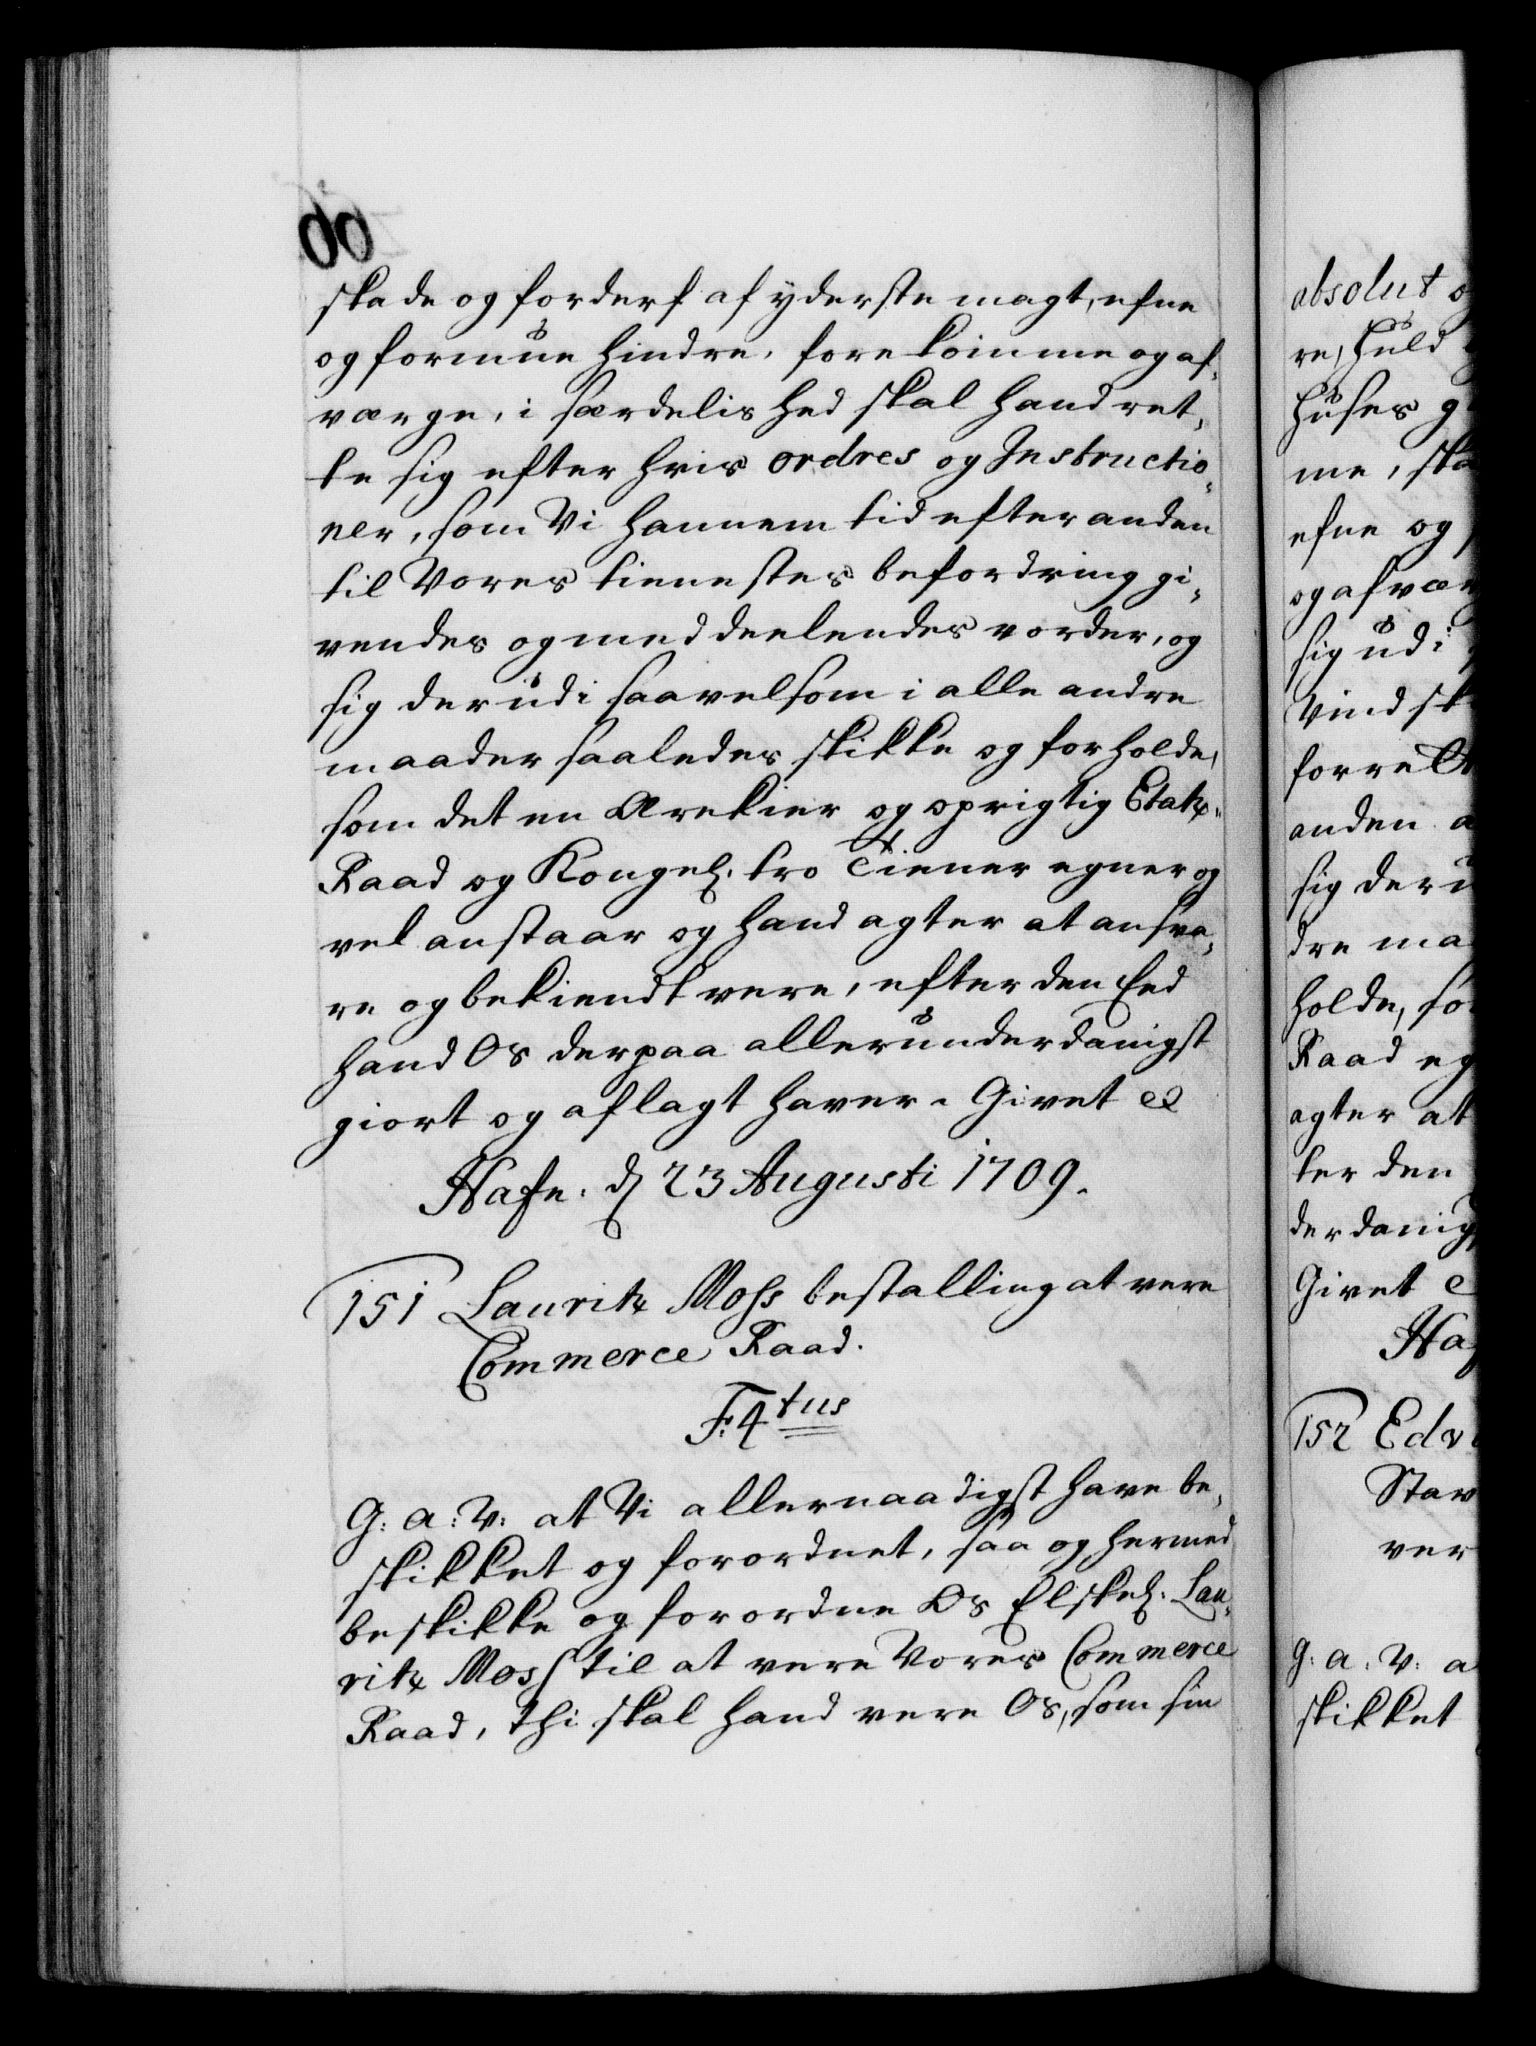 skade og forderf af yderste magt, efne
og formue hindre, forekomme og af-
værge, i særdelished skal hand ret-
te sig efter hvis ordres og Instructio-
ner, som Vi hannem tid efter anden
til Vores tienestes befordring gi-
vendes og meddeelendes vorder, og
sig derudi saavelsom i alle andre
maader saaledes skikke og forholde,
som det en Ærekier og oprigtig Etatz-
Raad og Kongel. tro Tiener egner og
vel anstaar og hand agter at ansva-
re og bekiendt vere, efter den Eed
hand Os derpaa allerunderdanigst
giort og aflagt haver. Givet etc
Hafn. d 23 Augusti 1709.
151 Lauritz Moss bestalling at vere
Commerce Raad.
F: 4tus
G: A: V: at Vi allernaadigst have be-
skikket og forordnet, saa og hermed
beskikke og forordne Os Elskel. Lau-
ritz Moss til at vere Vores Commerce
Raad, thi skal hand vere Os, som sin
absolut
re, huld
huses
me,
efne og
og afvær
sig udi
Vind
forrett
anden
sig deru
dre maa
holde,
Raad
agter at
ter den
derdanig
Givet
Haf
152 Edv
Stav
ver
G: A: V: a
skikket